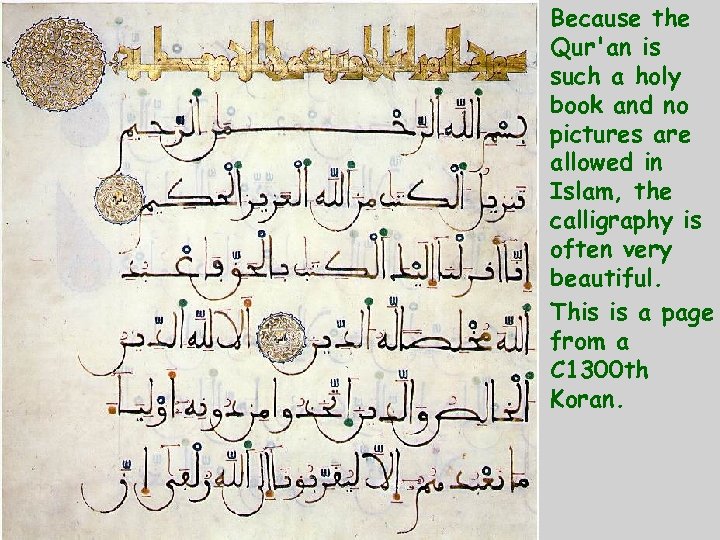 بسم الله الرحمن الرحيم
تنزيل الكتب من الله العزيز الحكيم
انا انزلنا اليك الكتب بالحق فاعبد
الله مخلصا له الدين الا لله الدين
الخالص والذين اتخذوا من دونه اوليا
ما نعبدهم الا ليقربونا الى الله زلفى ان
Because the
Qur'an is
such a holy
book and no
pictures are
allowed in
Islam, the
calligraphy is
often very
beautiful.
This is a page
from a
C 1300 th
Koran.